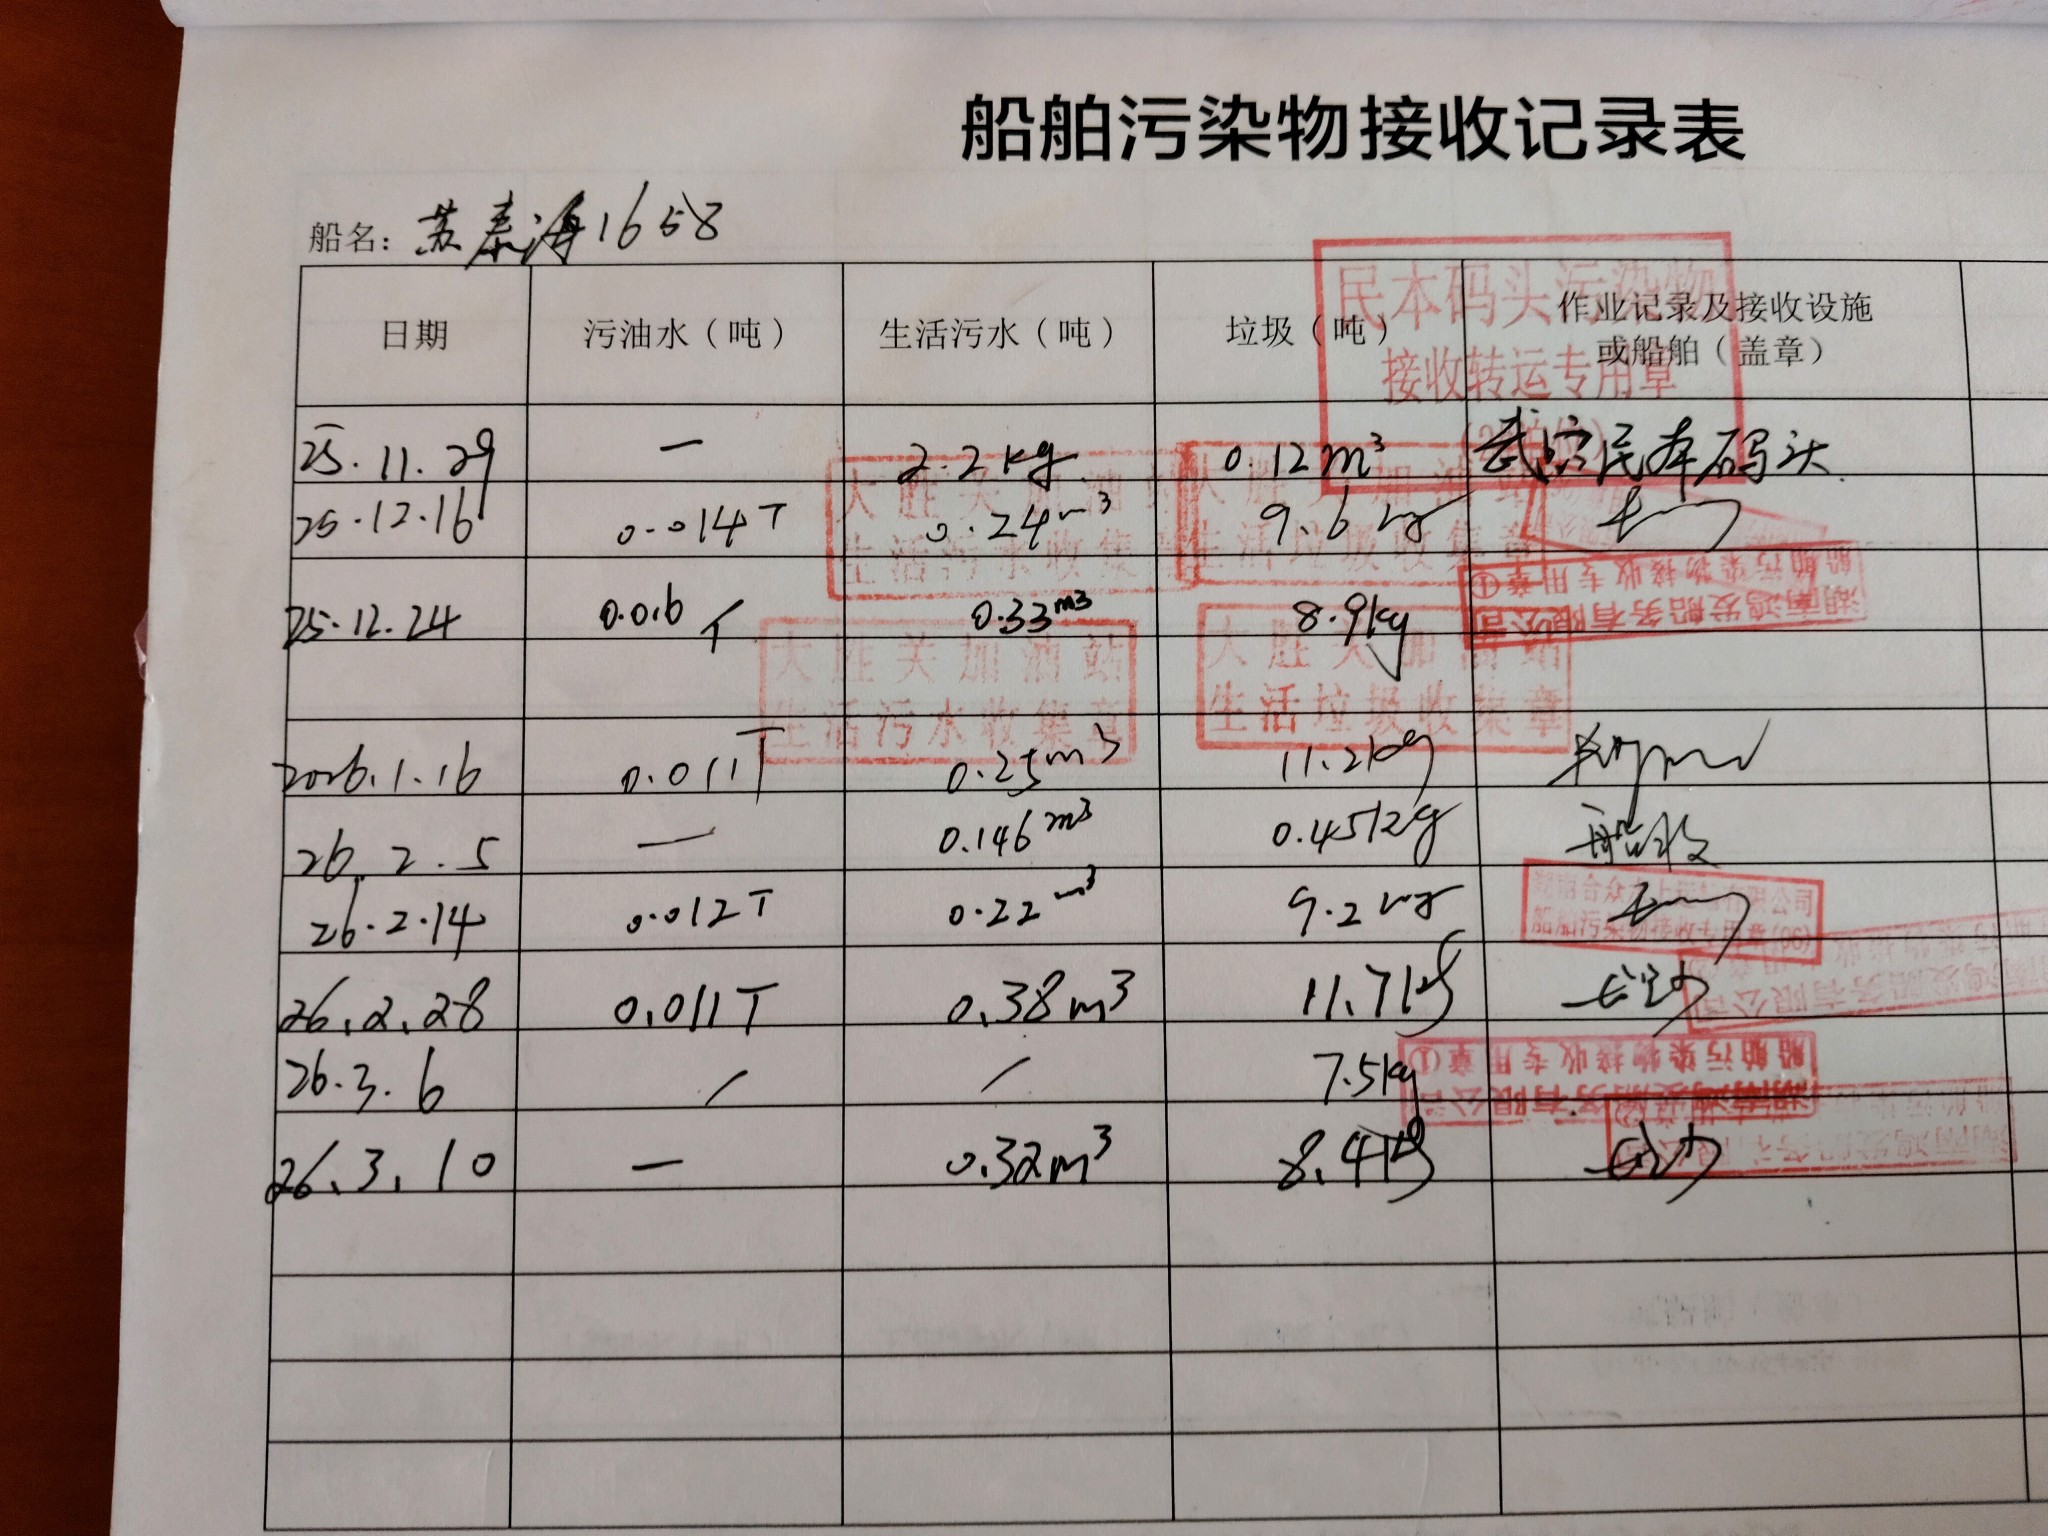 船舶污染物接收记录表
船名：苏泰海1658
日期 污油水（吨） 生活污水（吨） 垃圾（吨） 作业记录及接收设施或船舶（盖章）
民本码头污染物
接收转运专用章
25.11.29 — 2.2kg 0.12m³ 民本码头
25.12.16 0.014T 0.24m³ 9.6kg
大胜关加油站
生活污水收集章
大胜关加油站
生活垃圾收集章
船舶污染物接收专用章①
湖南鸿发船务有限公司
25.12.24 0.016T 0.33m³ 8.9kg
大胜关加油站
生活污水收集章
大胜关加油站
生活垃圾收集章
2026.1.16 0.011T 0.25m³ 11.2kg
26.2.5 — 0.146m³ 0.45kg 船收
26.2.14 0.012T 0.22m³ 9.2kg
26.2.28 0.011T 0.38m³ 11.7kg 长沙
26.3.6 / / 7.5kg
船舶污染物接收专用章①
湖南鸿发船务有限公司
26.3.10 — 0.32m³ 8.4kg 长沙